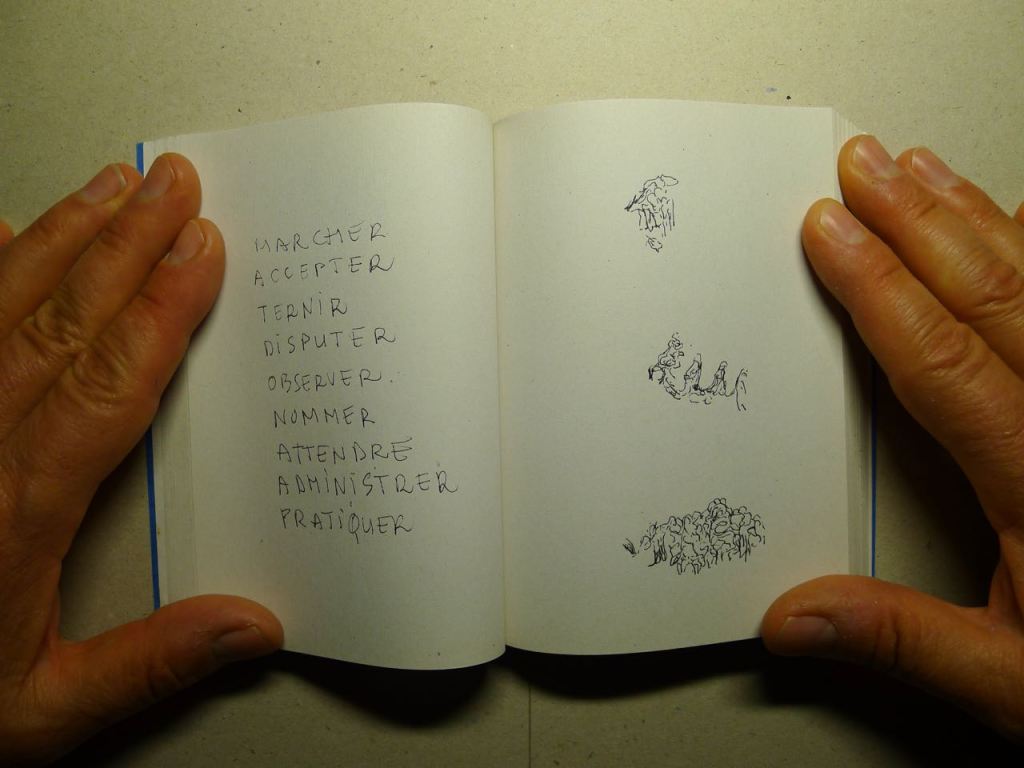 MARCHER
ACCEPTER
TERNIR
DISPUTER
OBSERVER.
NOMMER
ATTENDRE
ADMINISTRER
PRATIQUER